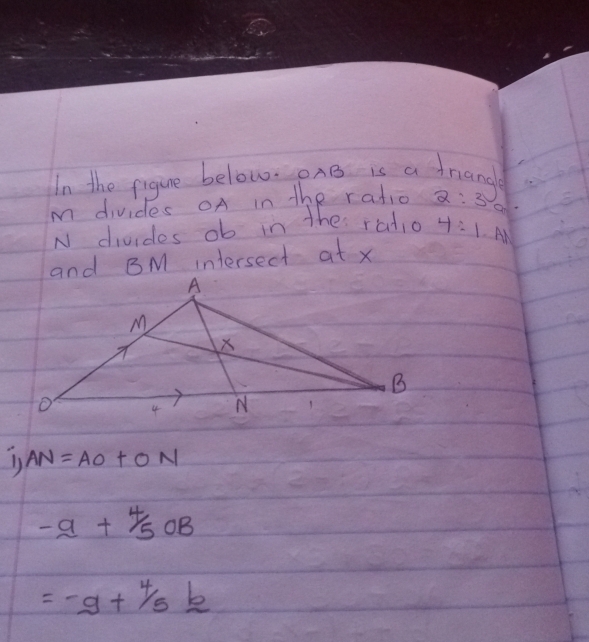 In the figure below. OAB is a triangle
M divides OA in the ratio 2:3 and
N divides ob in the ratio 4:1. AN
and BM intersect at x
A
M
x
O
B
4
N
1
i) AN = AO + ON
-a + 4/5 OB
= -a + 4/5 b